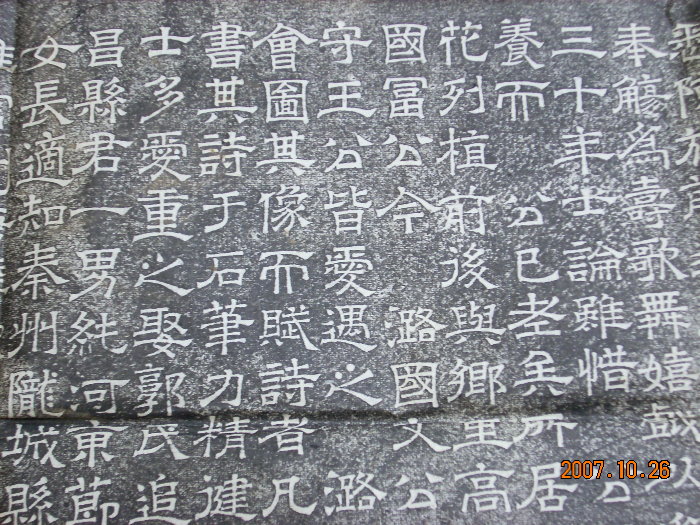 奉觴為壽歌舞嬉戲以
三十年士論雖惜 公
養而 公已老矣所居
花列植前後與鄉里高
國冨公今 潞國文公
守王公皆愛遇之 潞
會圖其像而賦詩者凡
書其詩于石筆力精健
士多愛重之娶郭氏追
昌縣君一男純河東節
女長適知秦州隴城縣
2007.10.26